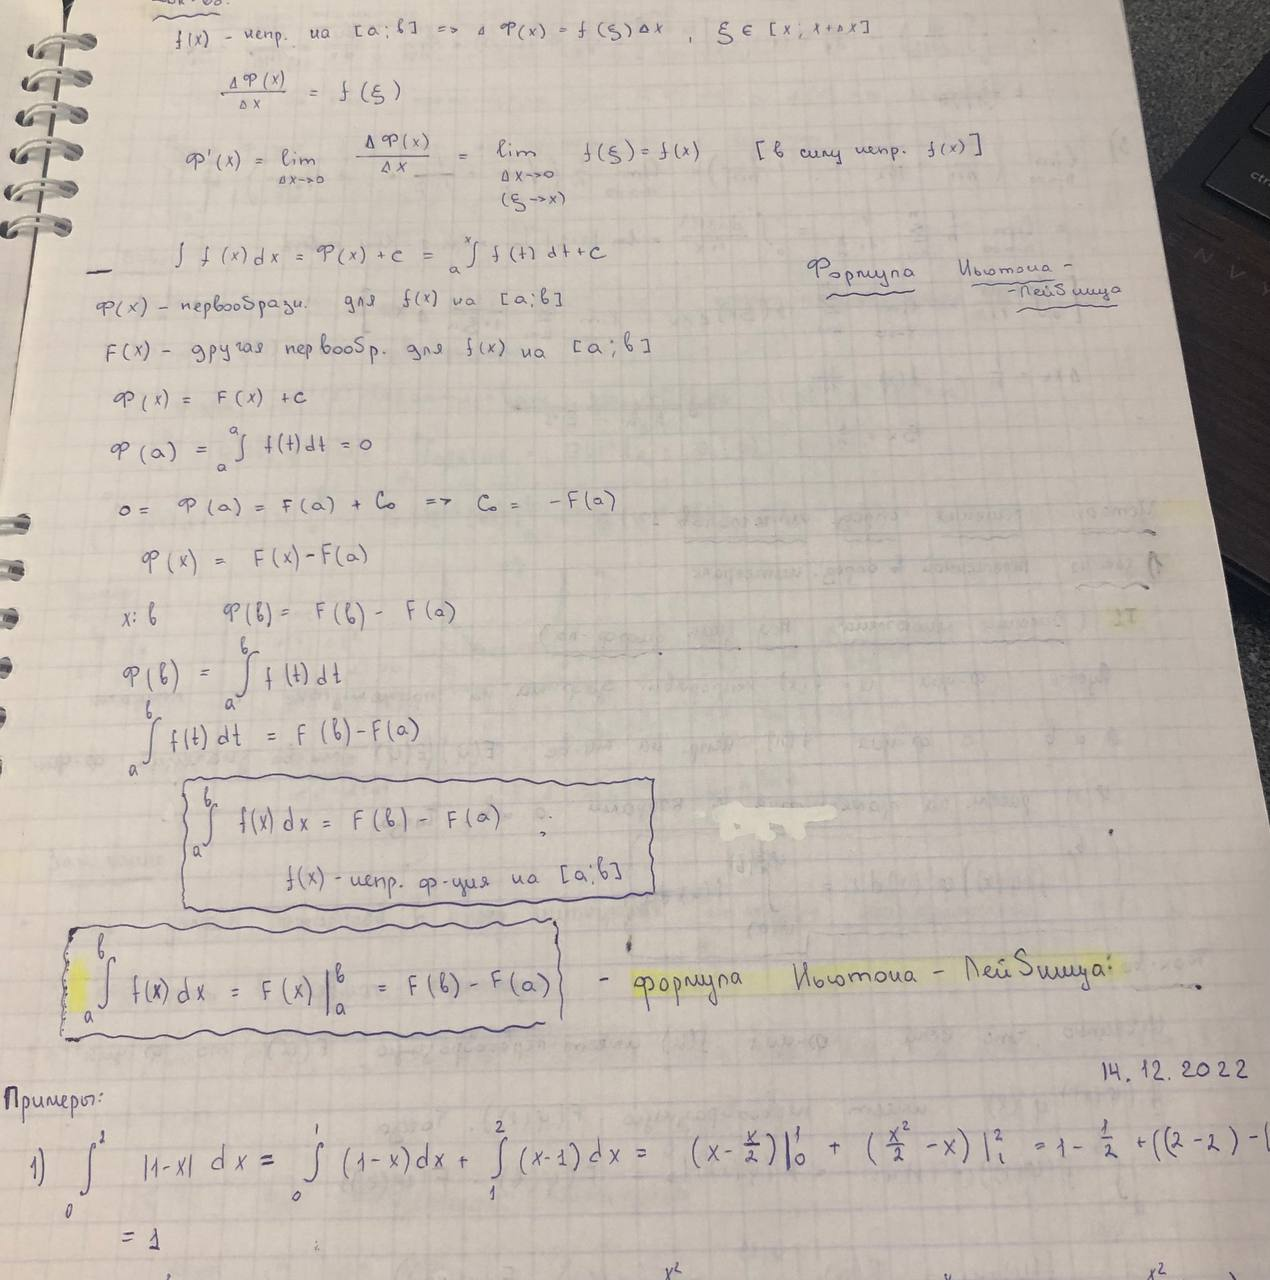 f(x) - непр. на [a; b] => Δ Φ(x) = f(ξ) Δx , ξ ∈ [x; x+Δx]
ΔΦ(x)/Δx = f(ξ)
Φ'(x) = lim_{Δx→0} ΔΦ(x)/Δx = lim_{Δx→0 (ξ→x)} f(ξ) = f(x) [в силу непр. f(x)]
∫ f(x) dx = Φ(x) + c = ∫_a^x f(t) dt + c
Формула Ньютона -
- Лейбница
Φ(x) - первообразн. для f(x) на [a; b]
F(x) - другая первообр. для f(x) на [a; b]
Φ(x) = F(x) + c
Φ(a) = ∫_a^a f(t) dt = 0
0 = Φ(a) = F(a) + C₀ => C₀ = -F(a)
Φ(x) = F(x) - F(a)
x: b Φ(b) = F(b) - F(a)
Φ(b) = ∫_a^b f(t) dt
∫_a^b f(t) dt = F(b) - F(a)
∫_a^b f(x) dx = F(b) - F(a) ;
f(x) - непр. ф-ция на [a; b]
∫_a^b f(x) dx = F(x) |_a^b = F(b) - F(a) - формула Ньютона - Лейбница:
14.12.2022
Примеры:
1) ∫_0^2 |1-x| dx = ∫_0^1 (1-x) dx + ∫_1^2 (x-1) dx = (x - x/2)|_0^1 + (x²/2 - x)|_1^2 = 1 - 1/2 + ((2-2) -
= 1